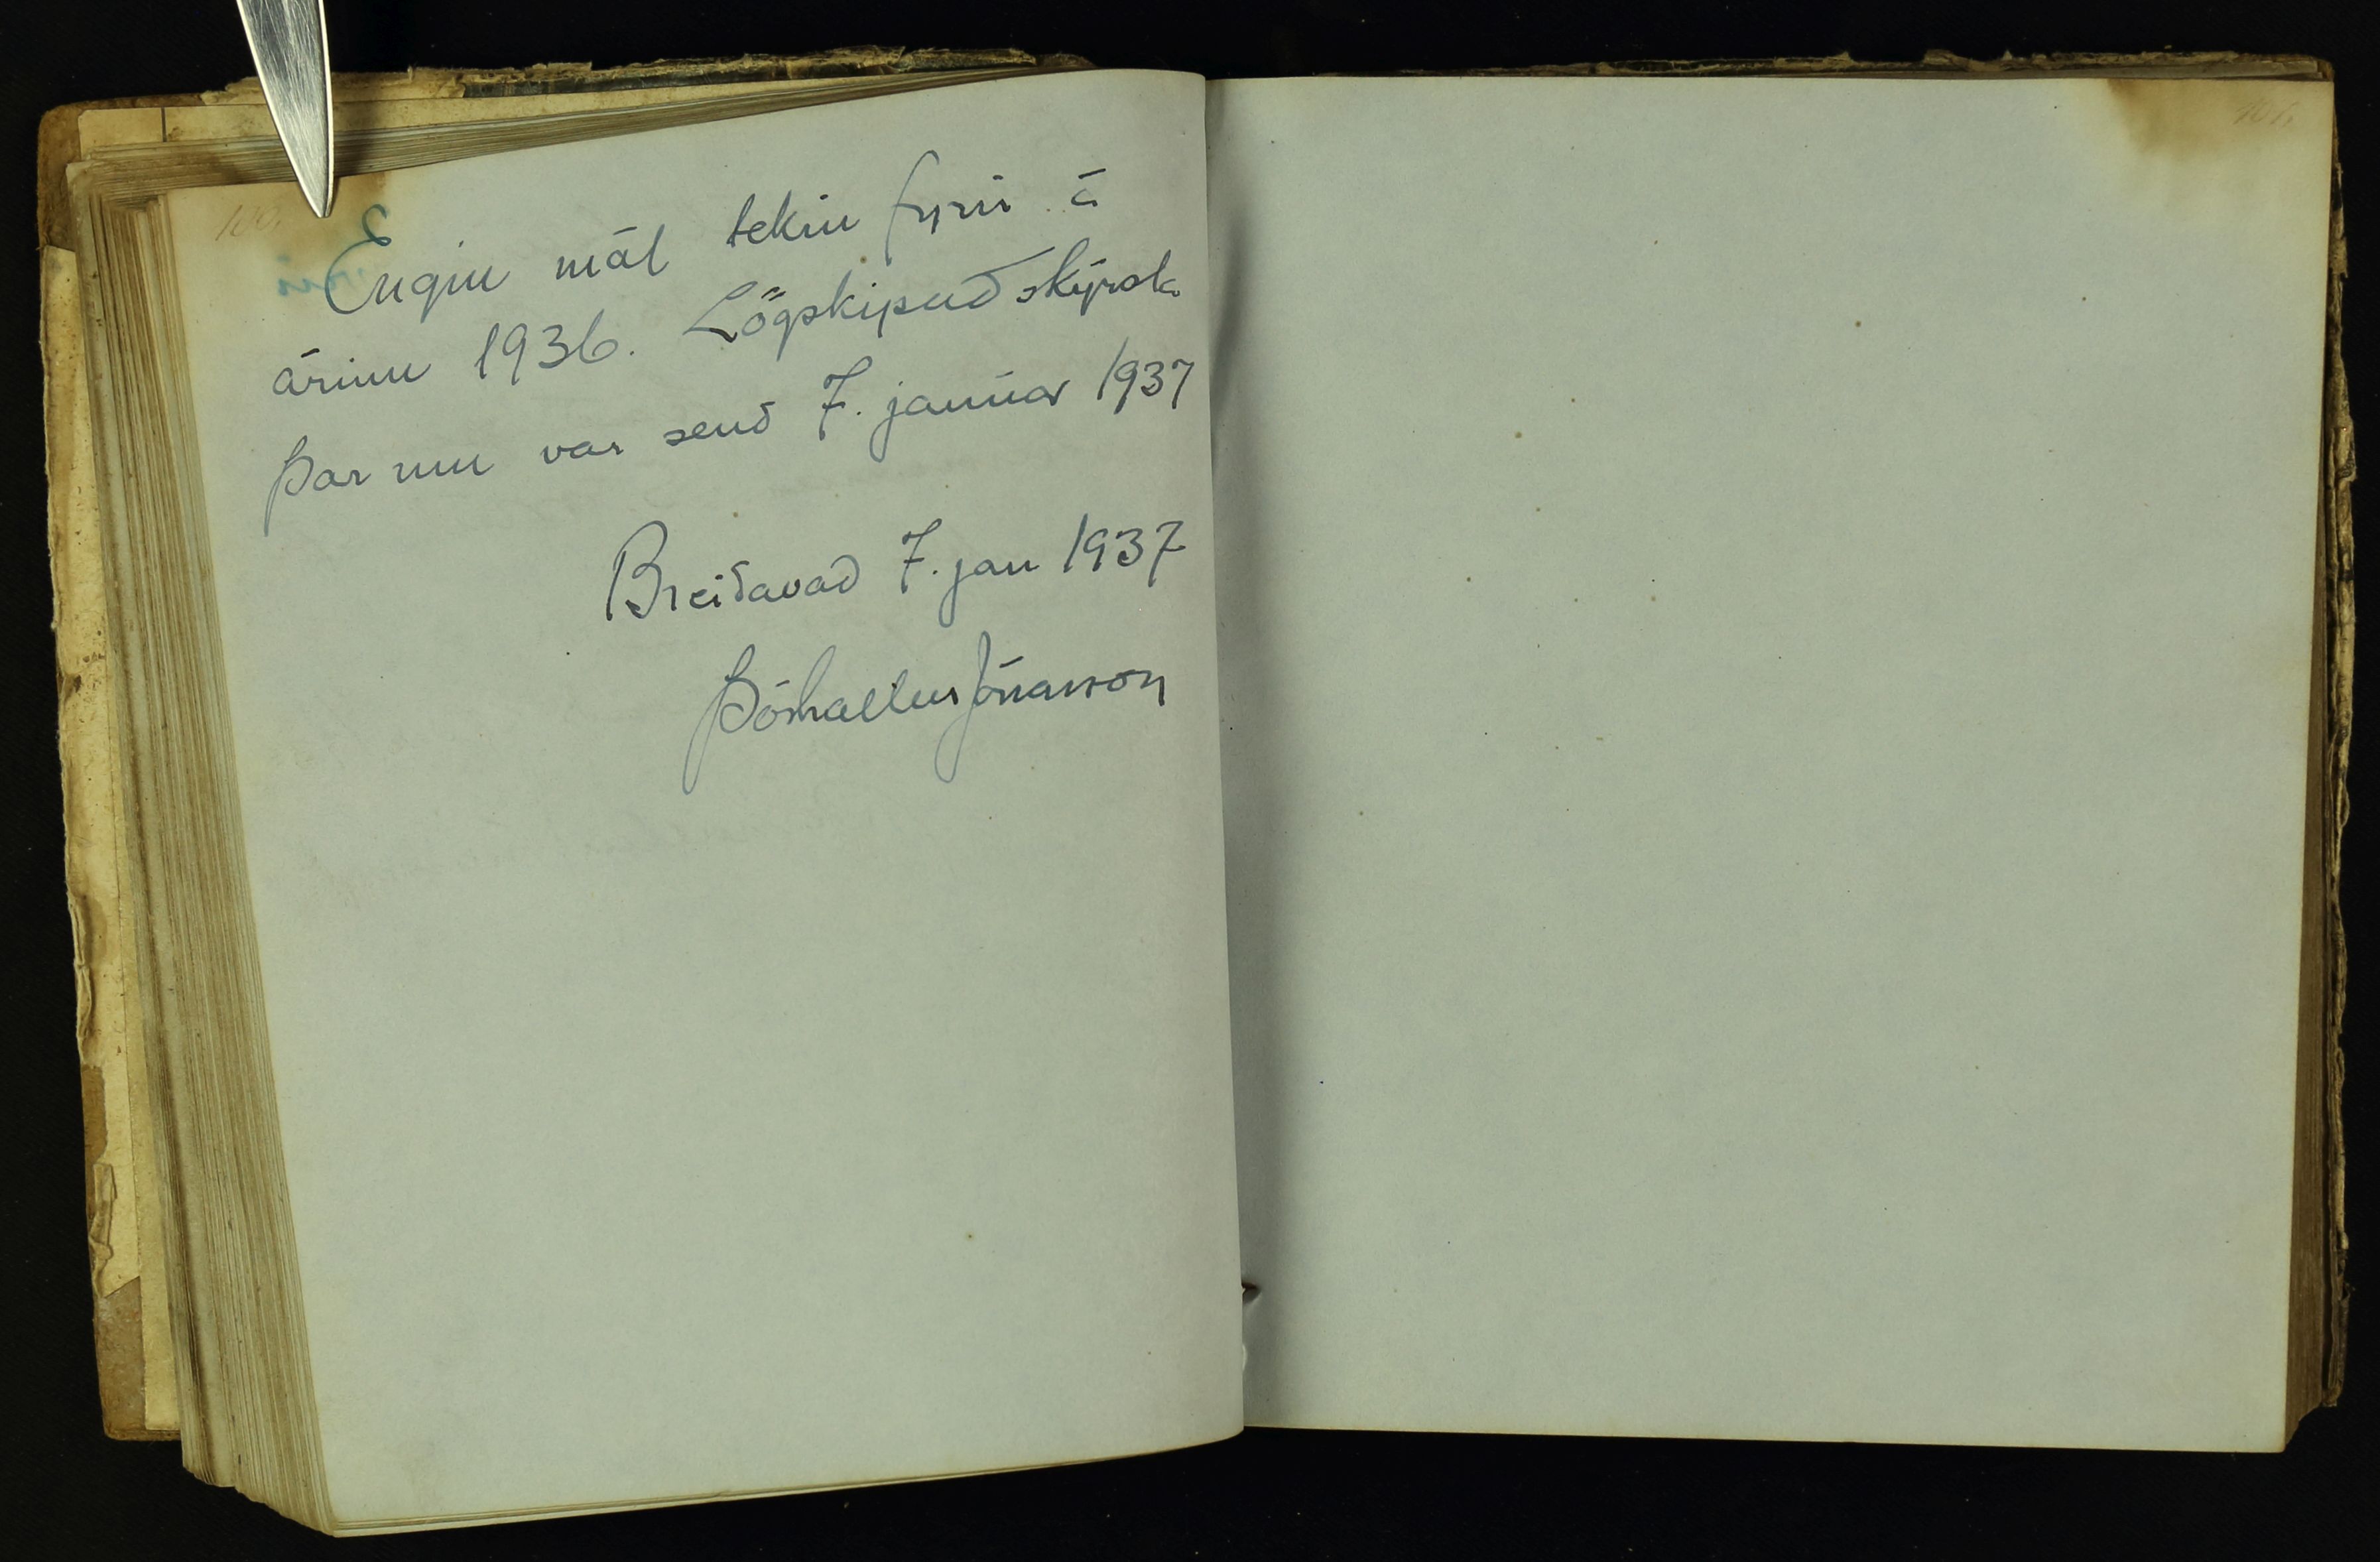 100.
Engin mál tekin fyrir á
árinu 1936. Lögskipuð skýrsla
þar um var send 7. janúar 1937
Breiðavað 7. jan 1937
Þórhallur Jónasson
101.